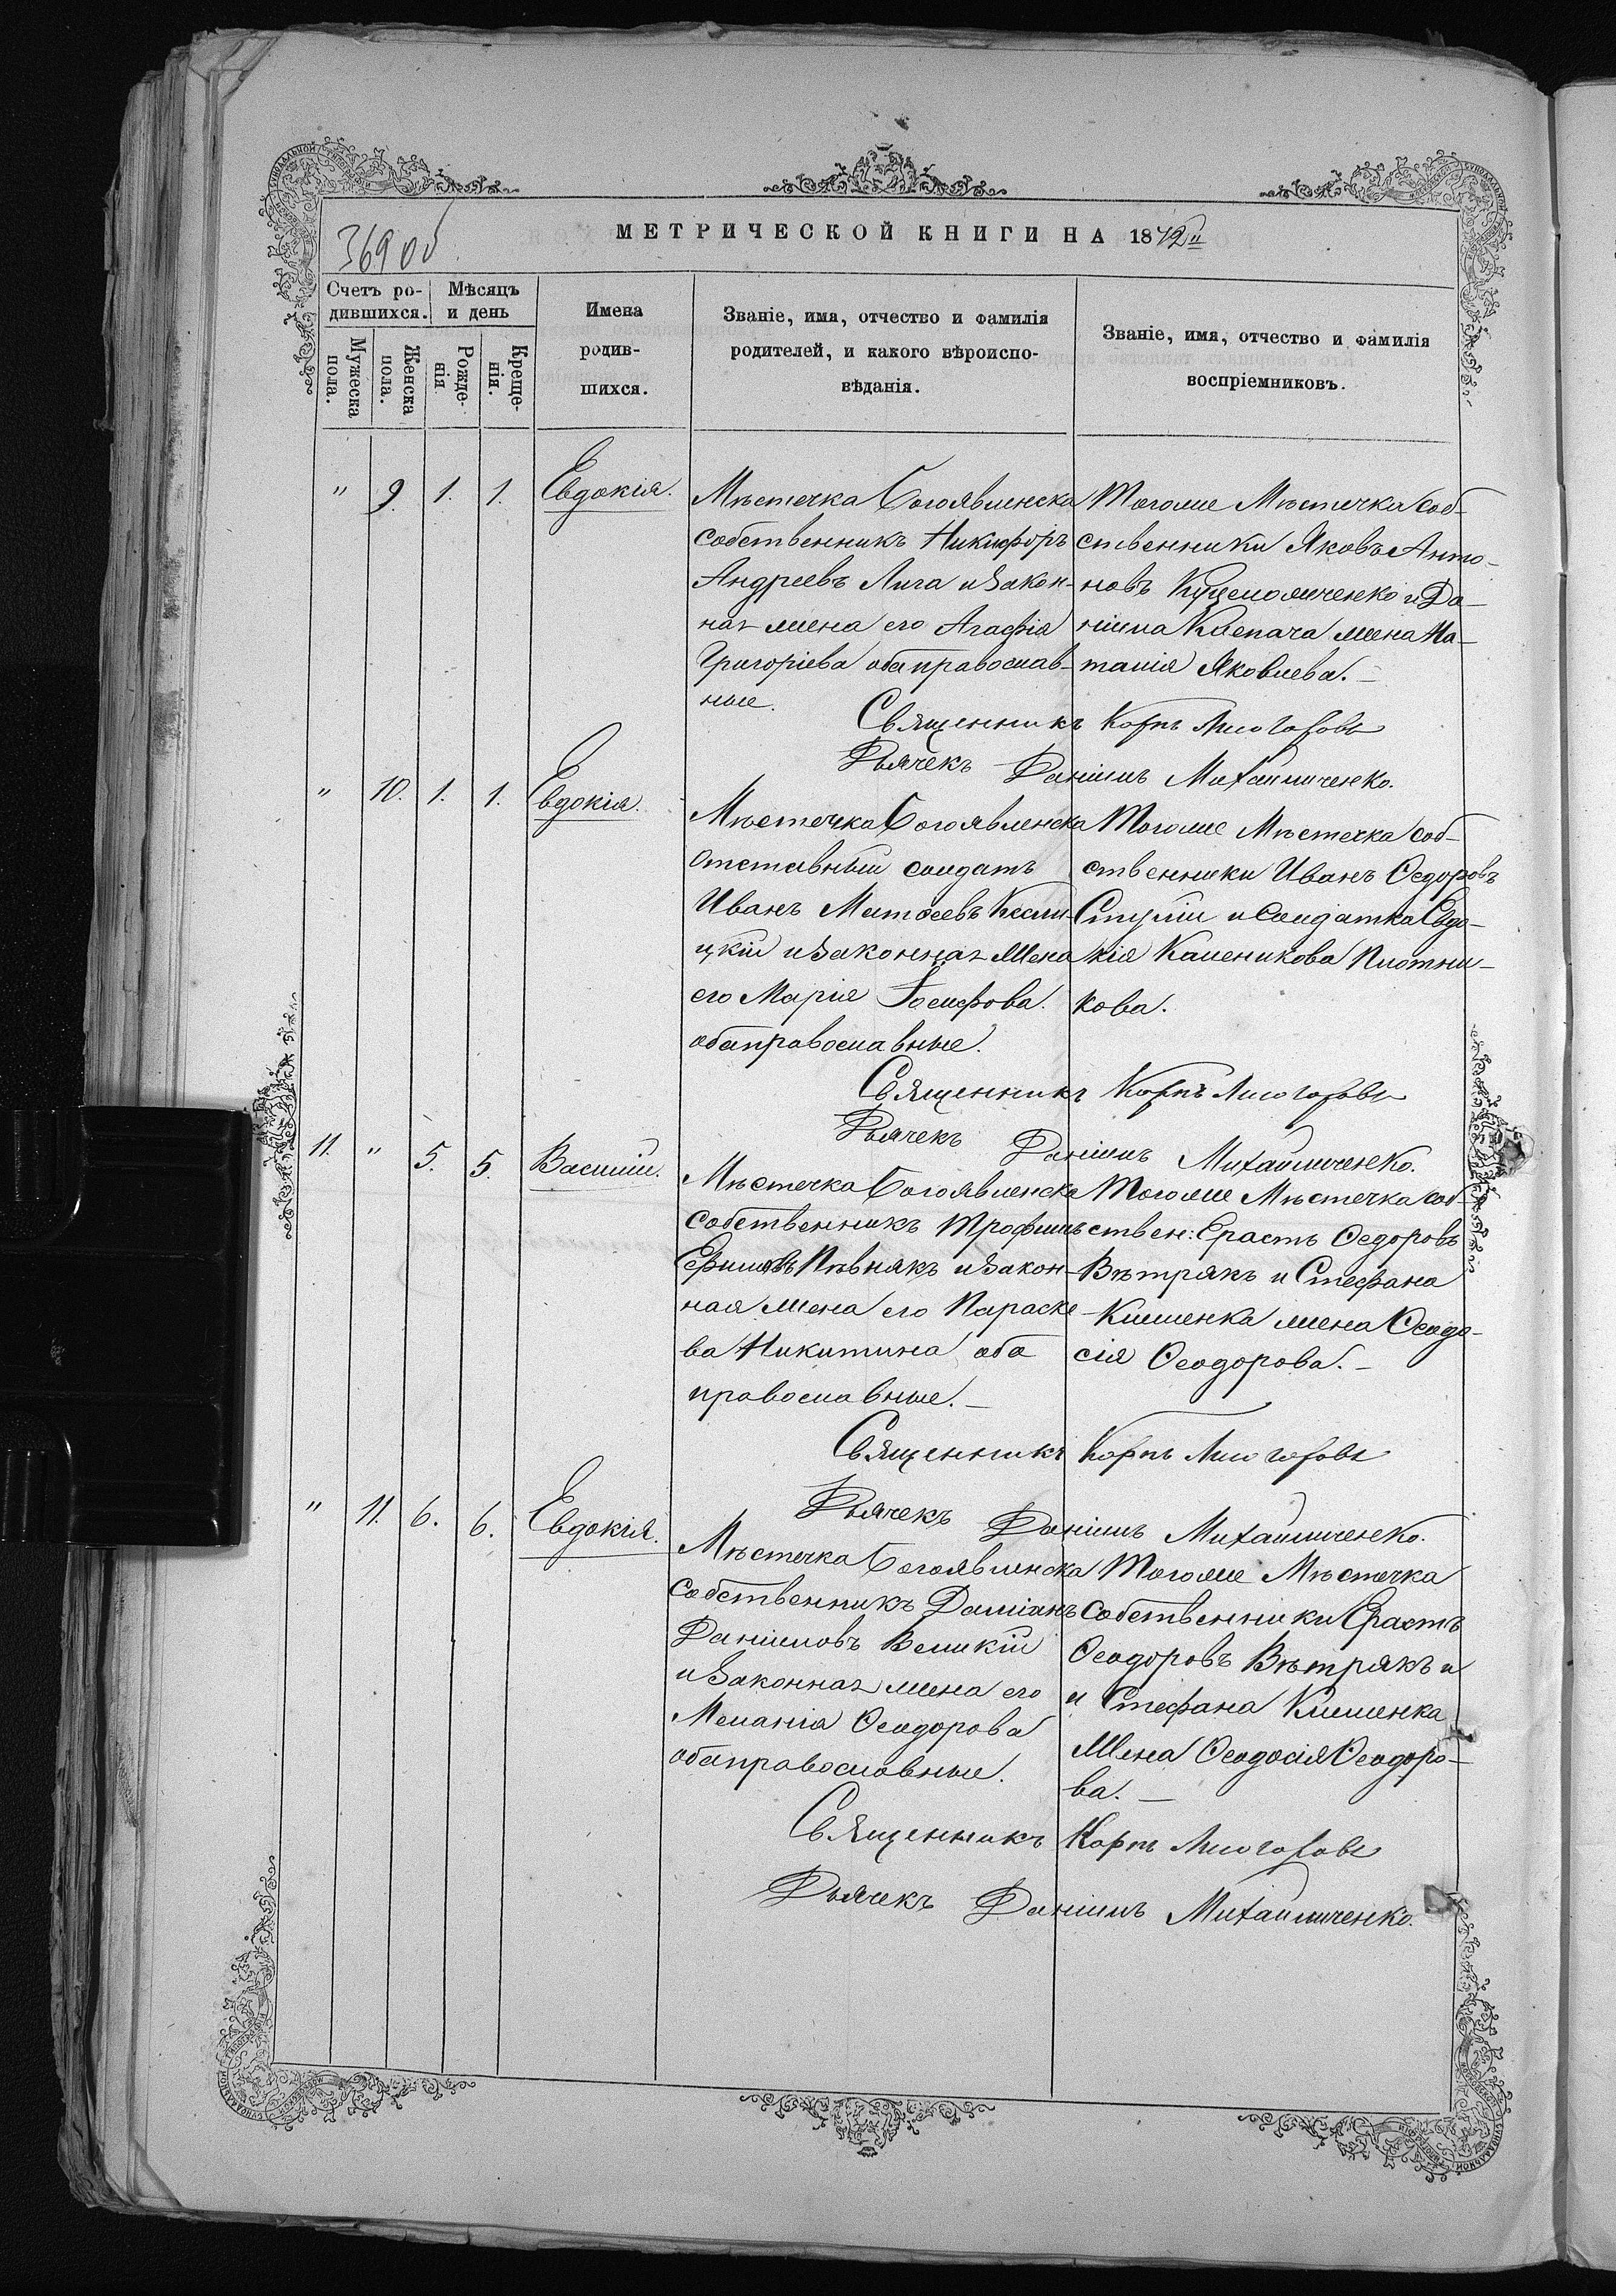 369 об
МЕТРИЧЕСКОЙ КНИГИ НА 1872й
Счетъ ро-
дившихся.
Мѣсяцъ
и день
Имена
родив-
шихся.
Званіе, имя, отчество и фамилія
родителей, и какого вѣроиспо-
вѣданія.
Званіе, имя, отчество и фамилія
воспріемниковъ.
Мужеска
пола.
Женска
пола.
Рожде-
нія
Креще-
нія.
" 9. 1. 1. Евдокія.
Мѣстечка Богоявленска
собственникъ Никифоръ
Андреевъ Лига и закон-
ная жена его Агафія
Григоріева оба православ-
ные.
Тогоже Мѣстечка соб-
ственники Яковъ Анто-
новъ и Да-
ніила Клепача жена На-
талія Яковлева.
Священникъ Карпъ
Дьячекъ Даніилъ Михайличенко.
" 10. 1. 1. Евдокія.
Мѣстечка Богоявленска
отставный солдатъ
Иванъ Матѳеевъ
цкій и законная жена
его Марія Іосифова.
оба православные.
Тогоже Мѣстечка соб-
ственники Иванъ Ѳедоровъ
и солдатка Евдо-
кія Каленикова Плотни-
кова.
Священникъ Карпъ
Дьячекъ Даніилъ Михайличенко.
11. " 5. 5. Василій.
Мѣстечка Богоявленска
собственникъ Трофимъ
Ефимовъ Пивнякъ и закон-
ная жена его Параске-
ва Никитина оба
православные.
Тогоже Мѣстечка соб-
ствен: Ерастъ Ѳедоровъ
Вѣтрякъ и Стефана
Клименка жена Ѳеодо-
сія Ѳеодорова.
Священникъ Карпъ
Дьячекъ Даніилъ Михайличенко.
" 11. 6. 6. Евдокія.
Мѣстечка Богоявленска
собственникъ Даміанъ
Даніиловъ Великій
и законная жена его
Меланія Ѳеодорова
оба православные.
Тогоже Мѣстечка
собственники Ерастъ
Ѳеодоровъ Вѣтрякъ и
и Стефана Клименка
жена Ѳеодосія Ѳеодоро-
ва.
Священникъ Карпъ
Дьячекъ Даніилъ Михайличенко.